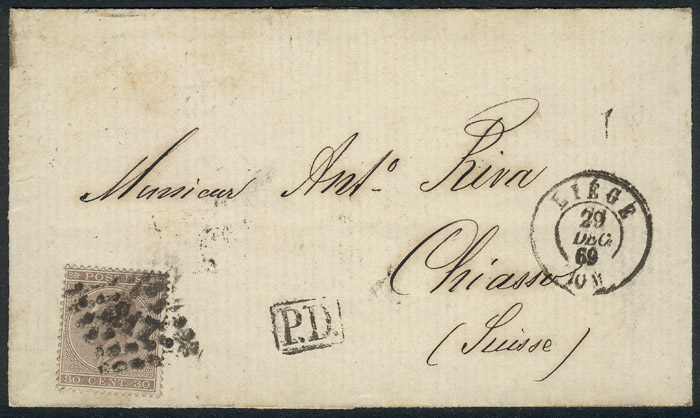 Monsieur Anto. Riva
Chiasso
(Suisse)
LIÉGE
29
DEC
69
P.D.
POSTES
30 CENT. 30